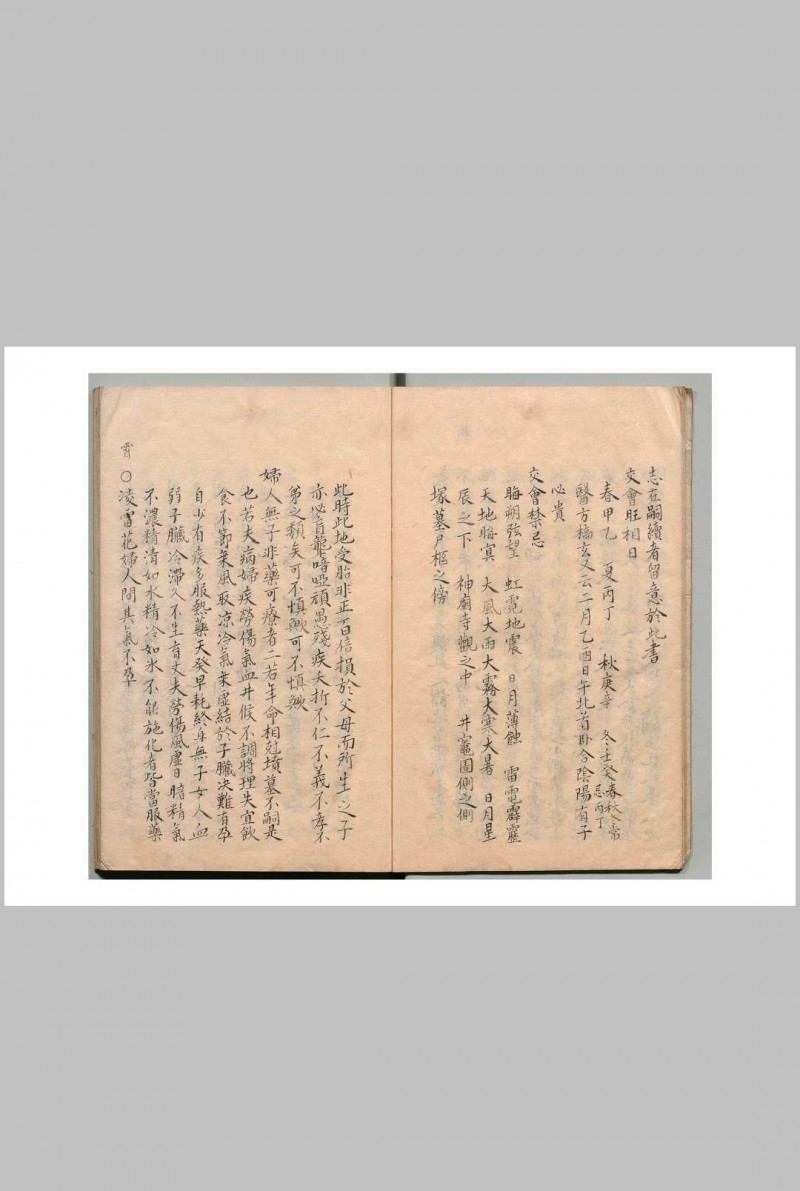 志在嗣續者留意於此書
交會旺相日
春甲乙 夏丙丁 秋庚辛 冬壬癸 春秋忌丙丁
醫方摘玄又云二月乙酉日午北首卧合陰陽有子
必貴
交會禁忌
晦朔弦望 虹霓地震 日月薄蝕 雷電霹靂
天地晦冥 大風大雨大霧大寒大暑 日月星
辰之下 神廟寺觀之中 井竈圊側之側
塚墓尸柩之傍
此時此地受胎非正百倍損於父母而所生之子
亦必盲聾喑啞頑愚殘疾夭折不仁不義不孝不
弟之類矣可不慎歟可不慎歟
婦人無子非藥可療者二若年命相尅墳墓不嗣是
也若夫病婦疾勞傷氣血并候不調將理失宜飲
食不節乗風取凉冷氣乗虛結於子臟决難有孕
自少有疾多服熱藥天癸早耗終身無子女人血
弱子臟冷滯久不生育丈夫勞傷風虛日暗精氣
不濃精清如水精冷如氷不能施化者皆當服藥
○凌霄花婦人聞其氣不孕
霄